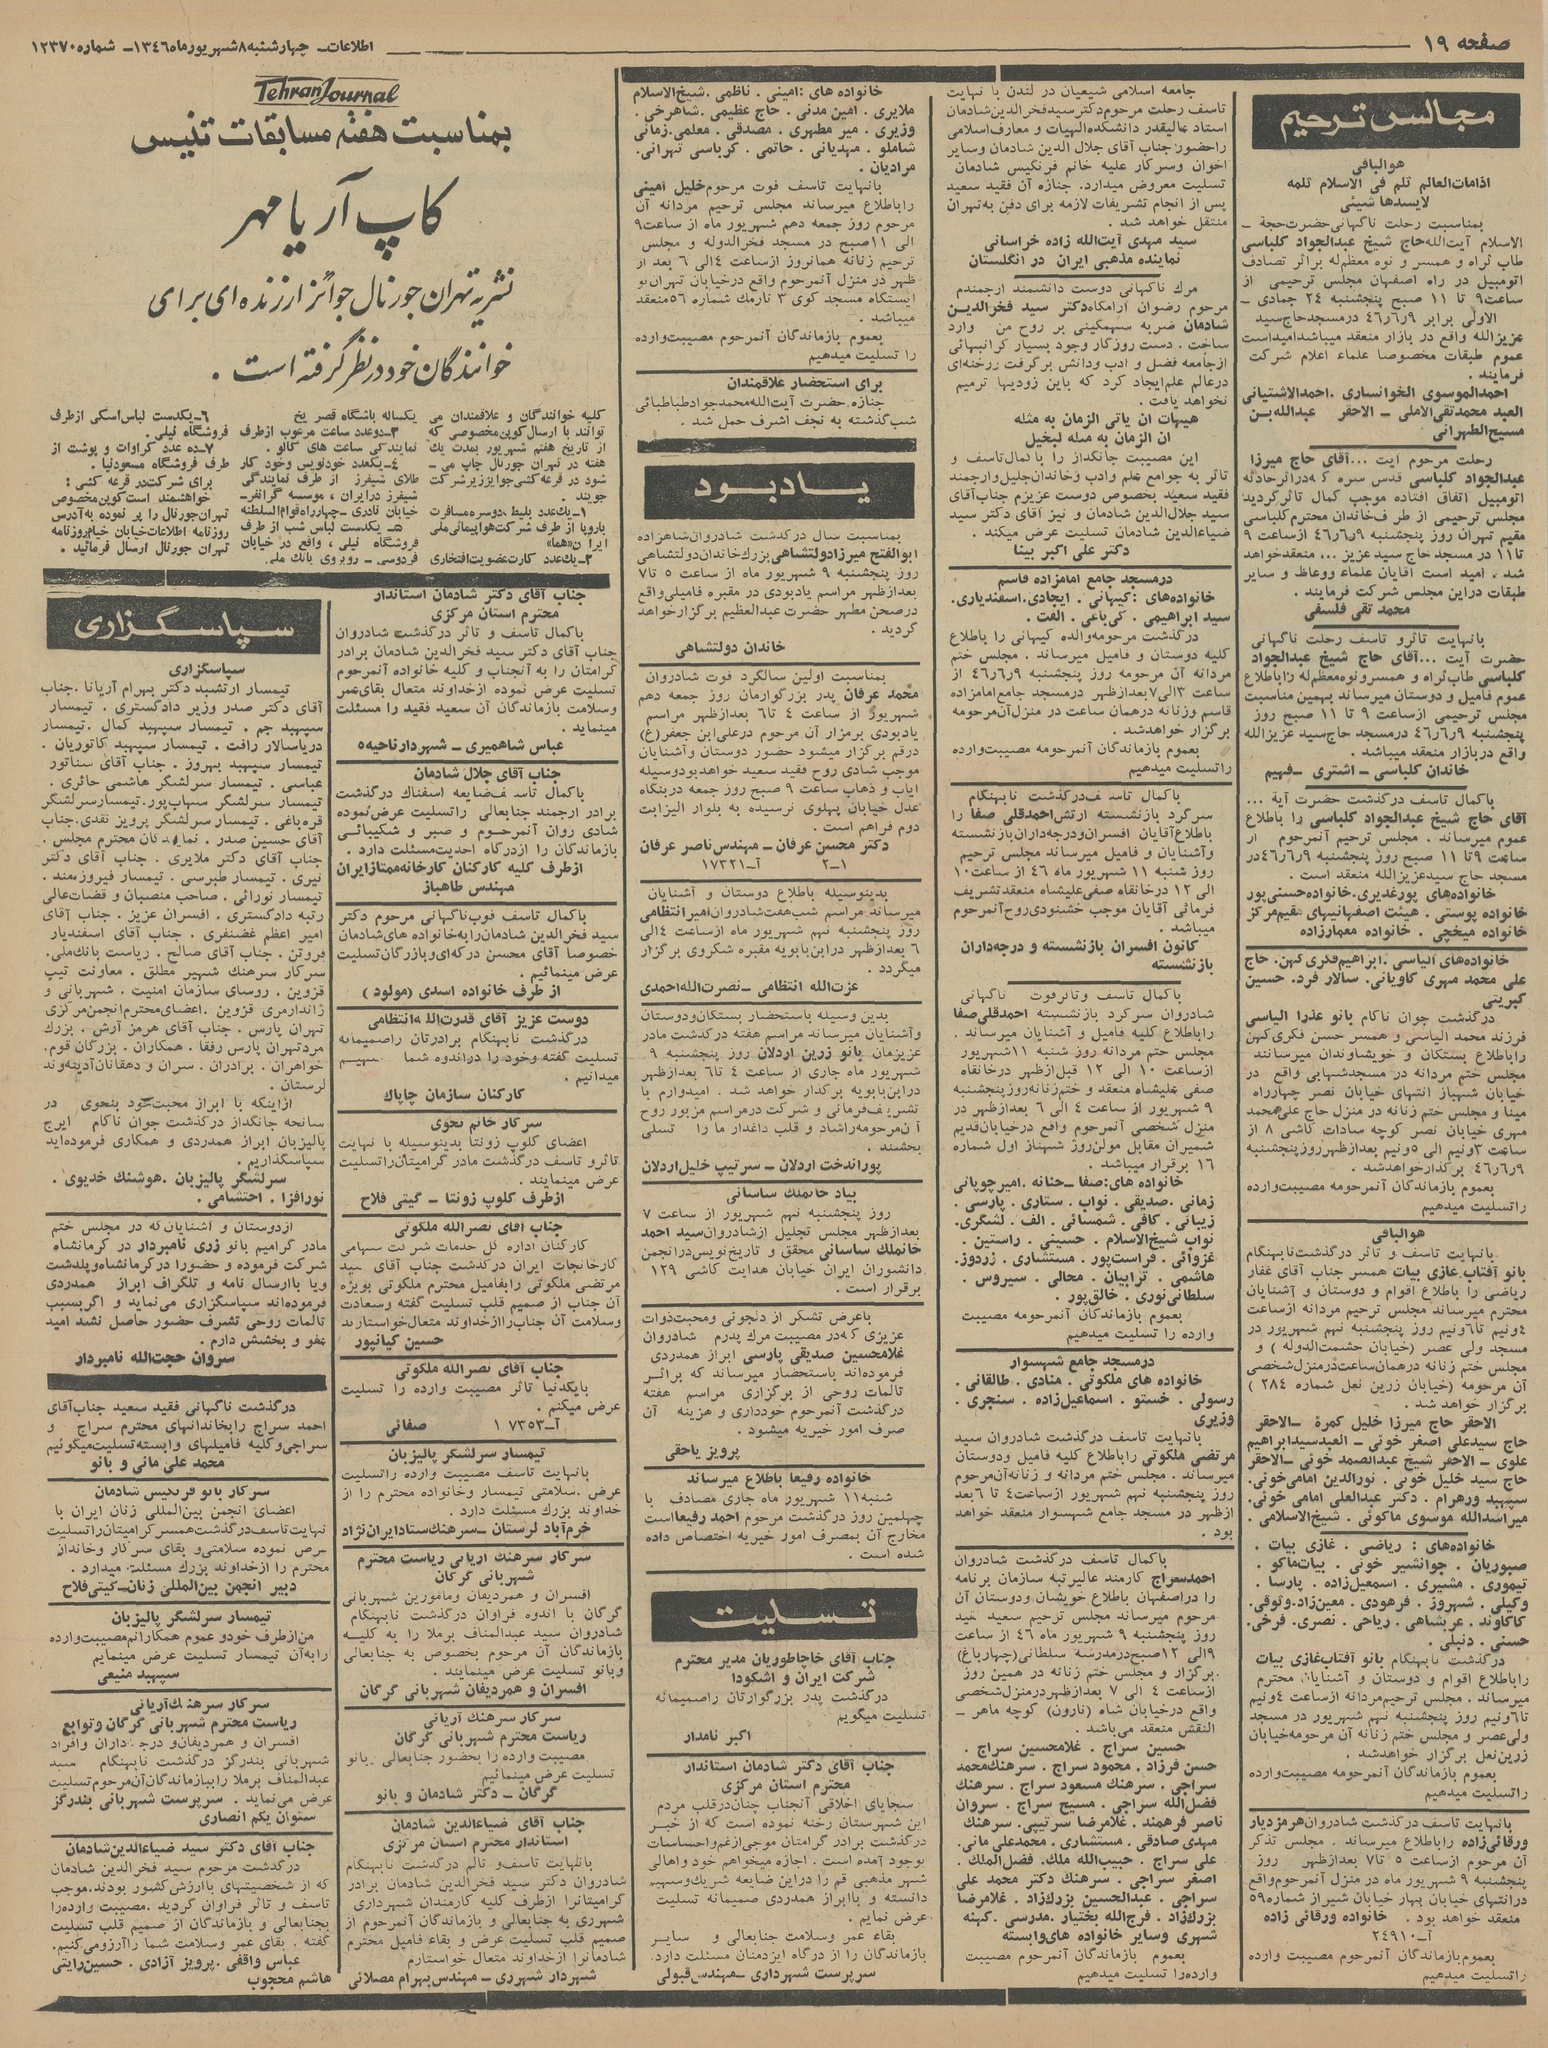 صفحه ۱۹
اطلاعات ـ چهارشنبه ۸ شهریور ماه ۱۳۴۶ ـ شماره ۱۲۳۷۰
مجالس ترحیم
هوالباقی
بمناسبت رحلت ناگهانی حضرت حجة ـ
الاسلام آیت‌الله حاج شیخ عبدالجواد کلباسی
طاب ثراه و همسر و نوه معظم‌له براثر تصادف
اتومبیل در راه اصفهان مجلس ترحیمی از
ساعت ۹ تا ۱۱ صبح پنجشنبه ۲۴ جمادی ـ
الاولی برابر ۴۶ر۶ر۹ درمسجد حاج سید
عزیزالله واقع در بازار منعقد میباشد امید است
عموم طبقات مخصوصا علماء اعلام شرکت
فرمایند .
احمدالموسوی الخوانساری . احمدالاشتیانی
العبد محمدتقی الاملی ـ الاحقر عبدالله بن
مسیح الطهرانی
رحلت مرحوم آیت ... آقای حاج میرزا
عبدالجواد کلباسی قدس سره که در اثر حادثه
اتومبیل اتفاق افتاده موجب کمال تاثر گردید
مجلس ترحیمی از طرف خاندان محترم کلباسی
مقیم تهران روز پنجشنبه ۴۶ر۶ر۹ از ساعت ۹
تا ۱۱ در مسجد حاج سید عزیز ... منعقد خواهد
شد . امید است آقایان علماء ووعاظ و سایر
طبقات دراین مجلس شرکت فرمایند .
محمد تقی فلسفی
بانهایت تاثرو تاسف رحلت ناگهانی
حضرت آیت ... آقای حاج شیخ عبدالجواد
کلباسی طاب ثراه و همسرو نوه معظم‌له را باطلاع
عموم فامیل و دوستان میرساند بهمین مناسبت
مجلس ترحیمی ازساعت ۹ تا ۱۱ صبح روز
پنجشنبه ۴۶ر۶ر۹ درمسجد حاج سید عزیزالله
واقع دربازار منعقد میباشد .
خاندان کلباسی ـ اشتری ـ فهیم
باکمال تاسف درگذشت حضرت آیة ...
آقای حاج شیخ عبدالجواد کلباسی را باطلاع
عموم میرساند . مجلس ترحیم آنمرحوم از
ساعت ۹ تا ۱۱ صبح روز پنجشنبه ۴۶ر۶ر۹ در
مسجد حاج سید عزیزالله منعقد است .
خانواده‌های پورغدیری . خانواده حسنی پور
خانواده پوستی . هیئت اصفهانیهای مقیم مرکز
خانواده میخچی . خانواده معمارزاده
خانواده‌های الیاسی . ابراهیم فکری کهن . حاج
علی محمد مهری کاویانی . سالار فرد . حسین
کبریتی
درگذشت جوان ناکام بانو عذرا الیاسی
فرزند محمد الیاسی و همسر حسن فکری کهن
را باطلاع بستگان و خویشاوندان میرسانند
مجلس ختم مردانه در مسجد شهبابی واقع در
خیابان شهباز انتهای خیابان نصر چهارراه
مینا و مجلس ختم زنانه در منزل حاج علی محمد
مهری خیابان نصر کوچه سادات کاشی ۸ از
ساعت ۳ونیم الی ۵ونیم بعدازظهر روز پنجشنبه
۴۶ر۶ر۹ برگذار خواهد شد .
بعموم بازماندگان آنمرحومه مصیبت وارده
را تسلیت میدهیم
هوالباقی
بانهایت تاسف و تاثر درگذشت نابهنگام
بانو آفتاب غازی بیات همسر جناب آقای غفار
ریاضی را باطلاع اقوام و دوستان و آشنایان
محترم میرساند مجلس ترحیم مردانه از ساعت
۴ونیم تا ۶ونیم روز پنجشنبه نهم شهریور در
مسجد ولی عصر (خیابان حشمت‌الدوله) و
مجلس ختم زنانه درهمان ساعت درمنزل شخصی
آن مرحومه (خیابان زرین نعل شماره ۲۸۴)
برگزار خواهد شد .
الاحقر حاج میرزا خلیل کمره ـ الاحقر
حاج سیدعلی اصغر خوئی ـ العبد سیدابراهیم
علوی ـ الاحقر شیخ عبدالصمد خوئی ـ الاحقر
حاج سید خلیل خوئی . نورالدین امامی خوئی .
سپهبد ورهرام . دکتر عبدالعلی امامی خوئی .
میراسدالله موسوی ماکوئی . شیخ‌الاسلامی .
خانواده‌های : ریاضی . غازی بیات .
صبوریان . جوانشیر خوئی . بیات ماکو .
تیموری . مشیری . اسمعیل زاده . پارسا .
وکیلی . شهروز . فرهودی . معین‌زاد . وثوقی .
کاکاوند . عربشاهی . ریاحی . نصری . فرخی .
حسنی . دنبلی .
درگذشت نابهنگام بانو آفتاب غازی بیات
را باطلاع اقوام و دوستان و آشنایان محترم
میرساند . مجلس ترحیم مردانه از ساعت ۴ونیم
تا ۶ونیم روز پنجشنبه نهم شهریور در مسجد
ولی عصر و مجلس ختم زنانه آن مرحومه خیابان
زرین نعل برگزار خواهد شد .
بعموم بازماندگان آنمرحومه مصیبت وارده
را تسلیت میدهیم
بانهایت تاسف درگذشت شادروان هرمزدیار
ورقائی زاده را باطلاع میرساند . مجلس تذکر
آن مرحوم از ساعت ۵ تا ۷ بعدازظهر روز
پنجشنبه ۹ شهریور ماه در منزل آنمرحوم واقع
درانتهای خیابان بهار خیابان شیراز شماره ۵۹
منعقد خواهد بود . خانواده ورقائی زاده
آ ـ ۲۴۹۱۰
بعموم بازماندگان آنمرحوم مصیبت وارده
را تسلیت میدهیم
جامعه اسلامی شیعیان در لندن با نهایت
تاسف رحلت مرحوم دکتر سیدفخرالدین شادمان
استاد عالیقدر دانشکده الهیات و معارف اسلامی
را حضور جناب آقای جلال الدین شادمان و سایر
اخوان و سرکار علیه خانم فرنگیس شادمان
تسلیت معروض میدارد . جنازه آن فقید سعید
پس از انجام تشریفات لازمه برای دفن به تهران
منتقل خواهد شد .
سید مهدی آیت‌الله زاده خراسانی
نماینده مذهبی ایران در انگلستان
مرگ ناگهانی دوست دانشمند ارجمندم
مرحوم رضوان آرامگاه دکتر سید فخرالدین
شادمان ضربه سهمگینی بر روح من وارد
ساخت . دست روزگار وجود بسیار گرانبهائی
از جامعه فضل و ادب و دانش برگرفت و رخنه‌ای
درعالم علم ایجاد کرد که باین زودیها ترمیم
نخواهد یافت .
هیهات ان یاتی الزمان به مثله
ان الزمان به مثله لبخیل
این مصیبت جانگداز را باکمال تاسف و
تاثر به جوامع علم و ادب و خاندان جلیل و ارجمند
فقید سعید بخصوص دوست عزیزم جناب آقای
سید جلال‌الدین شادمان و نیز آقای دکتر سید
ضیاءالدین شادمان تسلیت عرض میکند .
دکتر علی اکبر بینا
درمسجد جامع امامزاده قاسم
خانواده‌های : کیهانی . ایجادی . اسفندیاری .
سید ابراهیمی . کی باغی . الفت .
درگذشت مرحومه والده کیهانی را باطلاع
کلیه دوستان و فامیل میرساند . مجلس ختم
مردانه آن مرحومه روز پنجشنبه ۴۶ر۶ر۹ از
ساعت ۳ الی ۷ بعدازظهر درمسجد جامع امامزاده
قاسم و زنانه درهمان ساعت در منزل آن مرحومه
برگزار خواهد شد .
بعموم بازماندگان آنمرحومه مصیبت وارده
را تسلیت میدهیم
باکمال تاسف درگذشت نابهنگام
سرگرد بازنشسته ارتش احمدقلی صفا را
باطلاع آقایان افسران و درجه‌داران بازنشسته
و آشنایان و فامیل میرساند مجلس ترحیم
روز شنبه ۱۱ شهریور ماه ۴۶ از ساعت ۱۰
الی ۱۲ درخانقاه صفی علیشاه منعقد تشریف
فرمائی آقایان موجب خشنودی روح آنمرحوم
میباشد .
کانون افسران بازنشسته و درجه‌داران
بازنشسته
باکمال تاسف و تاثر فوت ناگهانی
شادروان سرگرد بازنشسته احمدقلی صفا
را باطلاع کلیه فامیل و آشنایان میرساند .
مجلس ختم مردانه روز شنبه ۱۱ شهریور
از ساعت ۱۰ الی ۱۲ قبل از ظهر درخانقاه
صفی علیشاه منعقد و ختم زنانه روز پنجشنبه
۹ شهریور از ساعت ۴ الی ۶ بعدازظهر در
منزل شخصی آنمرحوم واقع درخیابان قدیم
شمیران مقابل مولن روژ شهناز اول شماره
۱۶ برقرار میباشد .
خانواده‌های : صفا ـ حنانه . امیرچوپانی
زمانی . صدیقی . نواب . ستاری . پارسی .
زیبائی . کافی . شمسائی . الف . لشگری .
نواب شیخ‌الاسلام . حسینی . راستین .
غزوائی . فراست‌پور . مستشاری . زردوز .
هاشمی . ترابیان . محالی . سیروس .
سلطانی نوری . خالق‌پور .
بعموم بازماندگان آنمرحومه مصیبت
وارده را تسلیت میدهیم
درمسجد جامع شهسوار
خانواده های ملکوتی . منادی . طالقانی .
رسولی . خستو . اسماعیل‌زاده . سنجری .
وزیری
بانهایت تاسف درگذشت شادروان سید
مرتضی ملکوتی را باطلاع کلیه فامیل و دوستان
میرساند . مجلس ختم مردانه و زنانه آن مرحوم
روز پنجشنبه نهم شهریور از ساعت ۴ تا ۶ بعد
ازظهر در مسجد جامع شهسوار منعقد خواهد
بود .
باکمال تاسف درگذشت شادروان
احمد سراج کارمند عالیرتبه سازمان برنامه
را دراصفهان باطلاع خویشان و دوستان آن
مرحوم میرساند مجلس ترحیم سعید فقید
روز پنجشنبه ۹ شهریور ماه ۴۶ از ساعت
۹ الی ۱۲ صبح درمدرسه سلطانی (چهارباغ)
برگزار و مجلس ختم زنانه در همین روز
از ساعت ۴ الی ۷ بعدازظهر درمنزل شخصی
واقع درخیابان شاه (نارون) کوچه ماهر ـ
النقش منعقد میباشد .
حسین سراج . غلامحسین سراج .
حسن فرزاد . محمود سراج . سرهنگ محمد
سراجی . سرهنگ مسعود سراج . سرهنگ
فضل‌الله سراجی . مسیح سراج . سروان
ناصر فرهمند . غلامرضا سرتیپی . سرهنگ
مهدی صادقی . مستشاری . محمدعلی مانی .
علی سراج . حبیب‌الله ملک . فضل‌الملک .
اصغر سراجی . سرهنگ دکتر محمد علی
سراجی . عبدالحسین بزرگ‌زاد . غلامرضا
بزرگ‌زاد . فرج‌الله بختیار . مدرسی . کهنه
شهری و سایر خانواده های وابسته
بعموم بازماندگان آنمرحوم مصیبت
وارده را تسلیت میدهیم
خانواده های : امینی . ناظمی . شیخ‌الاسلام
ملایری . امین مدنی . حاج عظیمی . شاهرخی .
وزیری . میر مطهری . مصدقی . معلمی . زمانی
شاملو . مهدیانی . حاتمی . کرباسی تهرانی .
مرادیان .
بانهایت تاسف فوت مرحوم خلیل امینی
را باطلاع میرساند مجلس ترحیم مردانه آن
مرحوم روز جمعه دهم شهریور ماه از ساعت ۹
الی ۱۱ صبح در مسجد فخرالدوله و مجلس
ترحیم زنانه همانروز از ساعت ۴ الی ۶ بعد از
ظهر در منزل آنمرحوم واقع درخیابان تهران نو
ایستگاه مسجد کوی ۳ نارمک شماره ۵۶ منعقد
میباشد .
بعموم بازماندگان آنمرحوم مصیبت وارده
را تسلیت میدهیم
برای استحضار علاقمندان
جنازه حضرت آیت‌الله محمدجواد طباطبائی
شب گذشته به نجف اشرف حمل شد .
یادبود
بمناسبت سال درگذشت شادروان شاهزاده
ابوالفتح میرزا دولتشاهی بزرگ خاندان دولتشاهی
روز پنجشنبه ۹ شهریور ماه از ساعت ۵ تا ۷
بعدازظهر مراسم یادبودی در مقبره فامیلی واقع
درصحن مطهر حضرت عبدالعظیم برگزار خواهد
گردید .
خاندان دولتشاهی
بمناسبت اولین سالگرد فوت شادروان
محمد عرفان پدر بزرگوارمان روز جمعه دهم
شهریور از ساعت ۴ تا ۶ بعدازظهر مراسم
یادبودی برمزار آن مرحوم درعلی‌ابن جعفر(ع)
درقم برگزار میشود حضور دوستان و آشنایان
موجب شادی روح فقید سعید خواهد بود وسیله
ایاب و ذهاب ساعت ۹ صبح روز جمعه دربنگاه
عدل خیابان پهلوی نرسیده به بلوار الیزابت
دوم فراهم است .
دکتر محسن عرفان ـ مهندس ناصر عرفان
۱ـ۲ آ ـ ۱۷۳۲۱
بدینوسیله باطلاع دوستان و آشنایان
میرساند مراسم شب هفت شادروان امیر انتظامی
روز پنجشنبه نهم شهریور ماه از ساعت ۴ الی
۶ بعدازظهر دراین‌بابویه مقبره شکروی برگزار
میگردد .
عزت‌الله انتظامی ـ نصرت‌الله احمدی
بدین وسیله باستحضار بستگان و دوستان
و آشنایان میرساند مراسم هفته درگذشت مادر
عزیزمان بانو زرین اردلان روز پنجشنبه ۹
شهریور ماه جاری از ساعت ۴ تا ۶ بعدازظهر
دراین‌بابویه برگذار خواهد شد . امیدوارم با
تشریف فرمائی و شرکت درمراسم مزبور روح
آن مرحومه را شاد و قلب داغدار ما را تسلی
بخشند .
پوراندخت اردلان ـ سرتیپ خلیل اردلان
بیاد خانملک ساسانی
روز پنجشنبه نهم شهریور از ساعت ۷
بعدازظهر مجلس تجلیل از شادروان سید احمد
خانملک ساسانی محقق و تاریخ نویس درانجمن
دانشوران ایران خیابان هدایت کاشی ۱۲۹
برقرار است .
باعرض تشکر از دلجوئی و محبت ذوات
عزیزی که در مصیبت مرگ پدرم شادروان
غلامحسین صدیقی پارسی ابراز همدردی
فرموده‌اند باستحضار میرساند که براثر
تالمات روحی از برگزاری مراسم هفته
درگذشت آنمرحوم خودداری و هزینه آن
صرف امور خیریه میشود .
پرویز یاحقی
خانواده رفیعا باطلاع میرساند
شنبه ۱۱ شهریور ماه جاری مصادف با
چهلمین روز درگذشت مرحوم احمد رفیعا است
مخارج آن بمصرف امور خیریه اختصاص داده
شده است .
تسلیت
جناب آقای خاچاطوریان مدیر محترم
شرکت ایران و اشکودا
درگذشت پدر بزرگوارتان راصمیمانه
تسلیت میگویم
اکبر نامدار
جناب آقای دکتر شادمان استاندار
محترم استان مرکزی
سجایای اخلاقی آنجناب چنان درقلب مردم
این شهرستان رخنه نموده است که از خبر
درگذشت برادر گرامتان موجی از غم و احساسات
بوجود آمده است . اجازه میخواهم خود و اهالی
شهر مذهبی قم را دراین ضایعه شریک و سهیم
دانسته و باابراز همدردی صمیمانه تسلیت
عرض نمایم .
بقاء عمر و سلامت جنابعالی و سایر
بازماندگان را از درگاه ایزدمنان مسئلت دارد .
سرپرست شهرداری ـ مهندس قبولی
Tehran Journal
بمناسبت هفته مسابقات تنیس
کاپ آریامهر
نشریه تهران جورنال جوائز ارزنده‌ای برای
خوانندگان خود در نظر گرفته است .
کلیه خوانندگان و علاقمندان می
توانند با ارسال کوپن مخصوصی که
از تاریخ هفتم شهریور بمدت یک
هفته در تهران جورنال چاپ می ـ
شود در قرعه‌کشی جوایز زیر شرکت
جویند .
۱ـ یک عدد بلیط ، دوسره مسافرت
باروپا از طرف شرکت هواپیمائی ملی
ایران «هما»
۲ـ یک عدد کارت عضویت افتخاری
یکساله باشگاه قصر یخ
۳ـ دوعدد ساعت مرغوب از طرف
نمایندگی ساعت های کالو .
۴ـ یکعدد خودنویس و خودکار
طلای شیفرز از طرف نمایندگی
شیفرز درایران ، موسسه گرانفر ـ
خیابان نادری ـ چهارراه قوام السلطنه
۵ـ یکدست لباس شب از طرف
فروشگاه نیلی ، واقع در خیابان
فردوسی ـ روبروی بانک ملی .
۶ـ یکدست لباس اسکی از طرف
فروشگاه نیلی .
۷ـ ده عدد کراوات و پوشت از
طرف فروشگاه مسعودنیا .
برای شرکت در قرعه کشی :
خواهشمند است کوپن مخصوص
تهران جورنال را پر نموده به آدرس
روزنامه اطلاعات خیابان خیام روزنامه
تهران جورنال ارسال فرمائید .
جناب آقای دکتر شادمان استاندار
محترم استان مرکزی
باکمال تاسف و تاثر درگذشت شادروان
جناب آقای دکتر سید فخرالدین شادمان برادر
گرامتان را به آنجناب و کلیه خانواده آنمرحوم
تسلیت عرض نموده از خداوند متعال بقای عمر
و سلامت بازماندگان آن سعید فقید را مسئلت
مینماید .
عباس شاهمیری ـ شهردار ناحیه ۵
جناب آقای جلال شادمان
باکمال تاسف ضایعه اسفناک درگذشت
برادر ارجمند جنابعالی را تسلیت عرض نموده
شادی روان آنمرحوم و صبر و شکیبائی
بازماندگان را از درگاه احدیت مسئلت دارد .
ازطرف کلیه کارکنان کارخانه ممتاز ایران
مهندس طاهباز
باکمال تاسف فوت ناگهانی مرحوم دکتر
سید فخرالدین شادمان را به خانواده های شادمان
خصوصا آقای محسن درکه‌ای و بازرگان تسلیت
عرض مینمائیم .
از طرف خانواده اسدی (مولود)
دوست عزیز آقای قدرت‌الله انتظامی
درگذشت نابهنگام برادرتان راصمیمانه
تسلیت گفته و خود را دراندوه شما سهیم
میدانیم .
کارکنان سازمان چاپاک
سرکار خانم نحوی
اعضای کلوپ زونتا بدینوسیله با نهایت
تاثر و تاسف درگذشت مادر گرامیتان را تسلیت
عرض مینمایند .
ازطرف کلوپ زونتا ـ گیتی فلاح
جناب آقای نصرالله ملکوتی
کارکنان اداره کل خدمات شرکت سهامی
کارخانجات ایران درگذشت جناب آقای سید
مرتضی ملکوتی را بفامیل محترم ملکوتی بویژه
آن جناب از صمیم قلب تسلیت گفته و سعادت
و سلامت آن جناب را از خداوند متعال خواستارند
حسین کیانپور
جناب آقای نصرالله ملکوتی
بایکدنیا تاثر مصیبت وارده را تسلیت
عرض میکنم .
آ ـ ۱۷۳۵۳ صفائی
تیمسار سرلشگر پالیزبان
بانهایت تاسف مصیبت وارده را تسلیت
عرض . سلامتی تیمسار و خانواده محترم را از
خداوند بزرگ مسئلت دارد .
خرم‌آباد لرستان ـ سرهنگ ستاد ایران نژاد
سرکار سرهنگ آریانی ریاست محترم
شهربانی گرگان
افسران و همردیفان و مامورین شهربانی
گرگان با اندوه فراوان درگذشت نابهنگام
شادروان سید عبدالمناف برملا را به کلیه
بازماندگان آن مرحوم بخصوص به جنابعالی
و بانو تسلیت عرض مینمایند .
افسران و همردیفان شهربانی گرگان
سرکار سرهنگ آریانی
ریاست محترم شهربانی گرگان
مصیبت وارده را بحضور جنابعالی . بانو
تسلیت عرض مینمائیم
گرگان ـ دکتر شادمان و بانو
جناب آقای ضیاءالدین شادمان
استاندار محترم استان مرکزی
بانهایت تاسف و تالم درگذشت نابهنگام
شادروان دکتر سید فخرالدین شادمان برادر
گرامیتان را از طرف کلیه کارمندان شهرداری
شهرری به جنابعالی و بازماندگان آنمرحوم از
صمیم قلب تسلیت عرض و بقاء فامیل محترم
شادمان را از خداوند متعال خواستارم
شهردار شهرری ـ مهندس بهرام مصلائی
سپاسگزاری
سپاسگزاری
تیمسار ارتشبد دکتر بهرام آریانا . جناب
آقای دکتر صدر وزیر دادگستری . تیمسار
سپهبد جم . تیمسار سپهبد کمال . تیمسار
دریاسالار رافت . تیمسار سپهبد کاتوزیان .
تیمسار سپهبد بهروز . جناب آقای سناتور
عباسی . تیمسار سرلشگر هاشمی حائری .
تیمسار سرلشگر سهاب‌پور . تیمسار سرلشگر
قره‌باغی . تیمسار سرلشگر پرویز نقدی . جناب
آقای حسین صدر . نمایندگان محترم مجلس .
جناب آقای دکتر ملایری . جناب آقای دکتر
نیری . تیمسار طبرسی . تیمسار فیروزمند .
تیمسار نورائی . صاحب منصبان و قضات عالی
رتبه دادگستری . افسران عزیز . جناب آقای
امیر اعظم غضنفری . جناب آقای اسفندیار
فروتن . جناب آقای صالح . ریاست بانک ملی .
سرکار سرهنگ شهیر مطلق . معاونت تیپ
قزوین . روسای سازمان امنیت . شهربانی و
ژاندارمری قزوین . اعضای محترم انجمن مرکزی
تهران پارس . جناب آقای هرمز آرش . بزرگ
مرد تهران پارس رفقا . همکاران . بزرگان قوم .
خواهران . برادران . سران و دهقانان آدینه‌وند
لرستان .
ازاینکه با ابراز محبت خود بنحوی در
سانحه جانگداز درگذشت جوان ناکام ایرج
پالیزبان ابراز همدردی و همکاری فرموده‌اید
سپاسگذاریم .
سرلشگر پالیزبان . هوشنگ خدیوی .
نورافزا . احتشامی .
از دوستان و آشنایان که در مجلس ختم
مادر گرامیم بانو زری نامبردار در کرمانشاه
شرکت فرموده و حضورا در کرمانشاه و پلدشت
و یا با ارسال نامه و تلگراف ابراز همدردی
فرموده‌اند سپاسگزاری می‌نماید و اگر بسبب
تالمات روحی تشرف حضور حاصل نشد امید
عفو و بخشش دارم .
سروان حجت‌الله نامبردار
درگذشت ناگهانی فقید سعید جناب آقای
احمد سراج را بخاندانهای محترم سراج و
سراجی و کلیه فامیلهای وابسته تسلیت میگوئیم
محمد علی مانی و بانو
سرکار بانو فرنگیس شادمان
اعضای انجمن بین‌المللی زنان ایران با
نهایت تاسف درگذشت همسر گرامیتان را تسلیت
عرض نموده سلامتی و بقای سرکار و خاندان
محترم را از خداوند بزرگ مسئلت میدارد .
دبیر انجمن بین‌المللی زنان ـ گیتی فلاح
تیمسار سرلشگر پالیزبان
من از طرف خود و عموم همکارانم مصیبت وارده
را به آن تیمسار تسلیت عرض مینمایم
سپهبد منیعی
سرکار سرهنگ آریانی
ریاست محترم شهربانی گرگان و توابع
افسران و همردیفان و درجه داران و افراد
شهربانی بندرگز درگذشت نابهنگام سید
عبدالمناف برملا را ببازماندگان آن مرحوم تسلیت
عرض می‌نماید . سرپرست شهربانی بندرگز
ستوان یکم انصاری
جناب آقای دکتر سید ضیاءالدین شادمان
درگذشت مرحوم سید فخرالدین شادمان
که از شخصیتهای باارزش کشور بودند . موجب
تاسف و تاثر فراوان گردید . مصیبت وارده را
بجنابعالی و بازماندگان از صمیم قلب تسلیت
گفته . بقای عمر و سلامت شما را آرزومی‌کنیم .
عباس واقفی . پرویز آزادی . حسین رایتی
هاشم محجوب